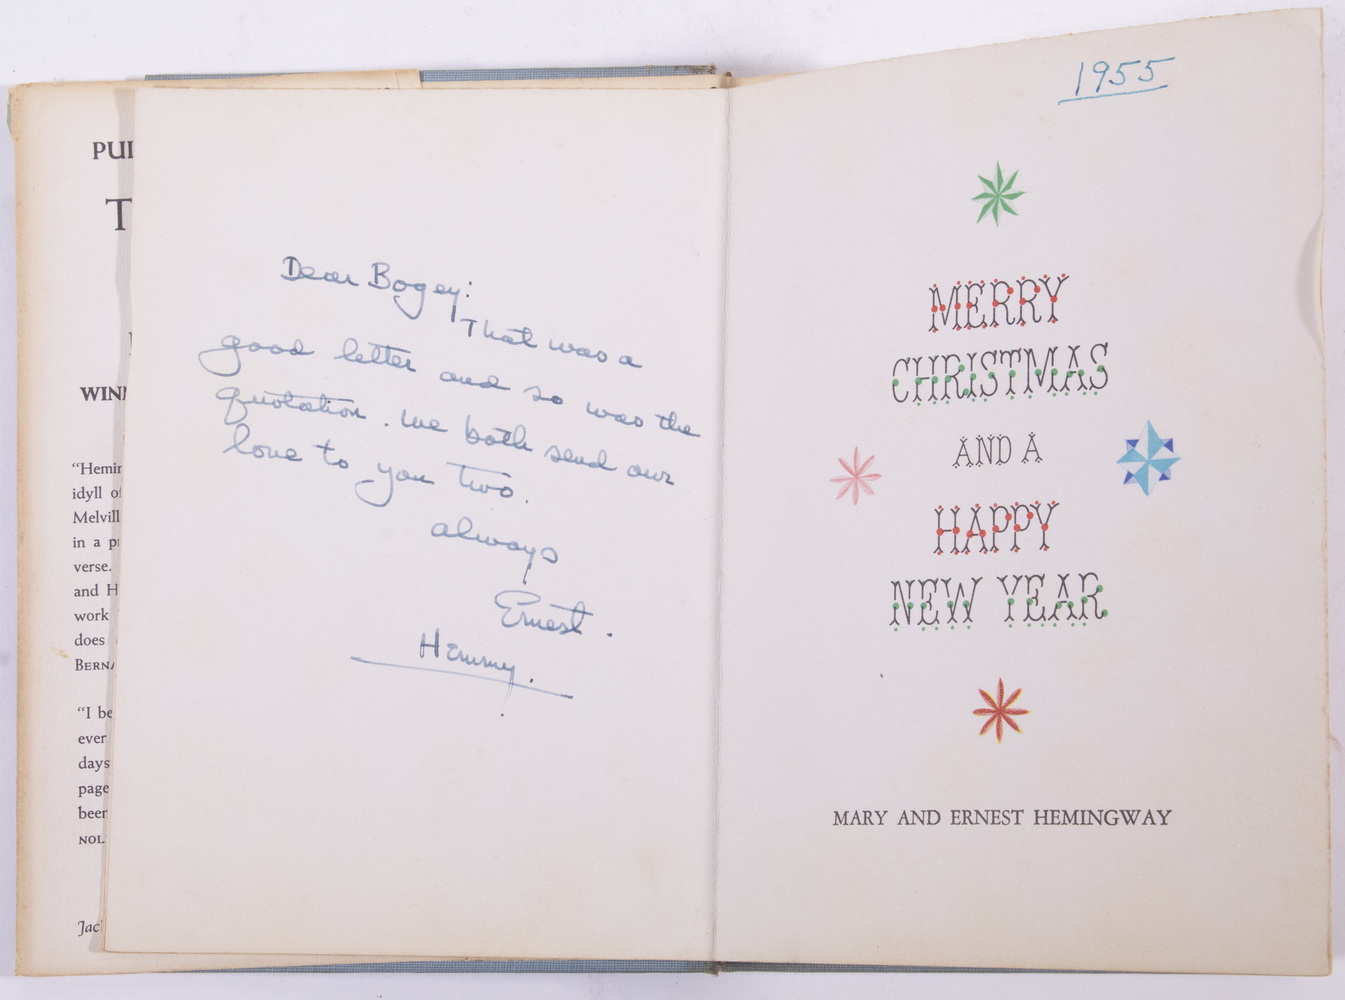 PUL
T
WIN
"Hemin
idyll of
Melvill
in a p
verse.
and H
work
does
BERNA
"I be
ever
days
page
been
NOL
Jac
Dear Bogey:
That was a
good letter and so was the
quotation. We both send our
love to you two.
always
Ernest.
Hemmy.
1955
MERRY
CHRISTMAS
AND A
HAPPY
NEW YEAR
MARY AND ERNEST HEMINGWAY